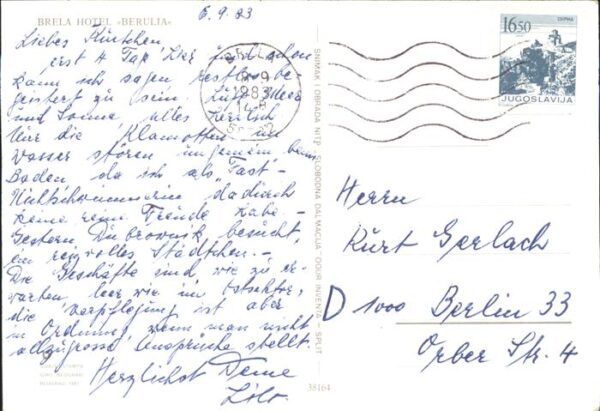 BRELA HOTEL »BERULIA«
6.9.83
Liebes Kürtchen,
erst 4 Tage hier und schon
kann ich sagen restlos be-
geistert zu sein. Luft, Meer
und Sonne, alles herrlich
Nur die Klamotten im
Wasser stören ungemein beim
Baden, da ich als "Fast-
Nichtschwimmerin" dadurch
keine reine Freude habe. -
Gestern Dubrovnik besucht,
ein reizvolles Städtchen. -
Die Geschäfte sind wie zu er-
warten, leer wie im Ostsektor,
die Verpflegung ist aber
in Ordnung, wenn man nicht
allzugrosse Ansprüche stellt.
Herzlichst Deine
Lilo.
SNIMAK I OBRADA NITP »SLOBODNA DALMACIJA« OOUR INVENTA — SPLIT
38164
BRELA
1983
16,50
JUGOSLAVIJA
Herrn
Kurt Gerlach
D 1000 Berlin 33
Orber Str. 4